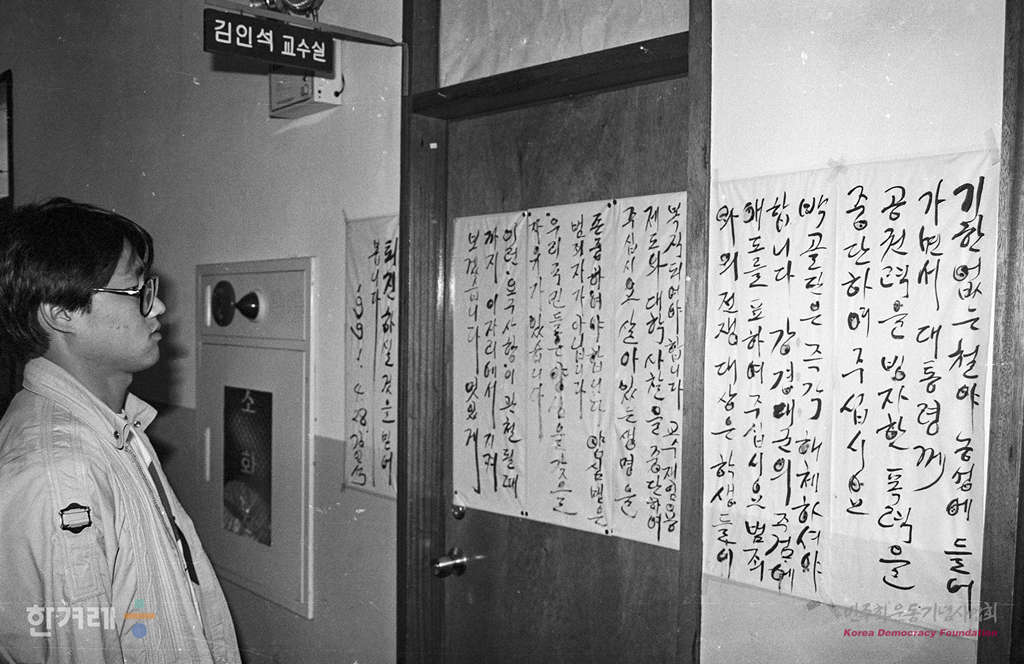 김인석 교수실
기한 없는 철야 농성에 들어
가면서 대통령께
공권력을 빙자한 폭력을
중단하여 주십시오
백골단은 즉각 해체하셔야
합니다 강경대군의 죽검에
애도를 표하여 주십시오 범죄
와의 전쟁 대상은 학생들이
복직되어야 합니다 교수재임용
제도와 대학사찰을 중단하여
주십시오 살아있는 생명을
존중하여야 합니다 양심범은
범죄자가 아닙니다
우리국민들은 양심을 갖을
자유가 있습니다
이런 요구사항이 관철될때
까지 이자리에서 지켜
보겠습니다 멋있게
퇴진하실 것으로 믿어
봅니다
김인석
소
화
한겨레
민주화운동기념사업회
Korea Democracy Foundation